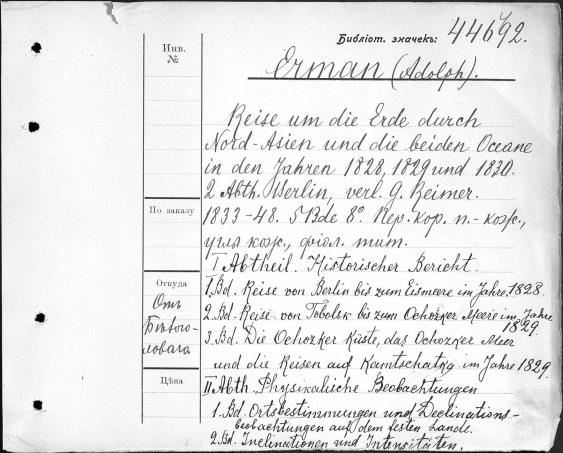 Библіот. значекъ: 44692.
Инв.
№
Erman (Adolph).
Reise um die Erde durch
Nord-Asien und die beiden Oceane
in den Jahren 1828, 1829 und 1830.
2 Abth. Berlin, verl. G. Reimer.
По заказу
1833-48. 5 Bde 8°. Пер. кор. п.-кож.,
угля кож., фіол. тит.
I Abtheil. Historischer Bericht.
Откуда
Отъ
Бѣлого-
ловаго.
1. Bd. Reise von Berlin bis zum Eismeere im Jahre 1828.
2. Bd. Reise von Tobolsk bis zum Ochozker Meere im Jahre
1829.
3. Bd. Die Ochozker Küste, das Ochozker Meer
und die Reisen auf Kamtschatka im Jahre 1829.
Цѣна
II Abth. Physikalische Beobachtungen
1. Bd. Ortsbestimmungen und Declinations-
beobachtungen auf dem festen Lande.
2. Bd. Inclinationen und Intensitäten.